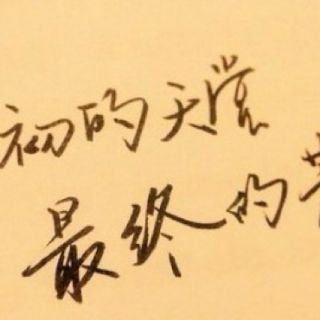 初的天堂
最终的